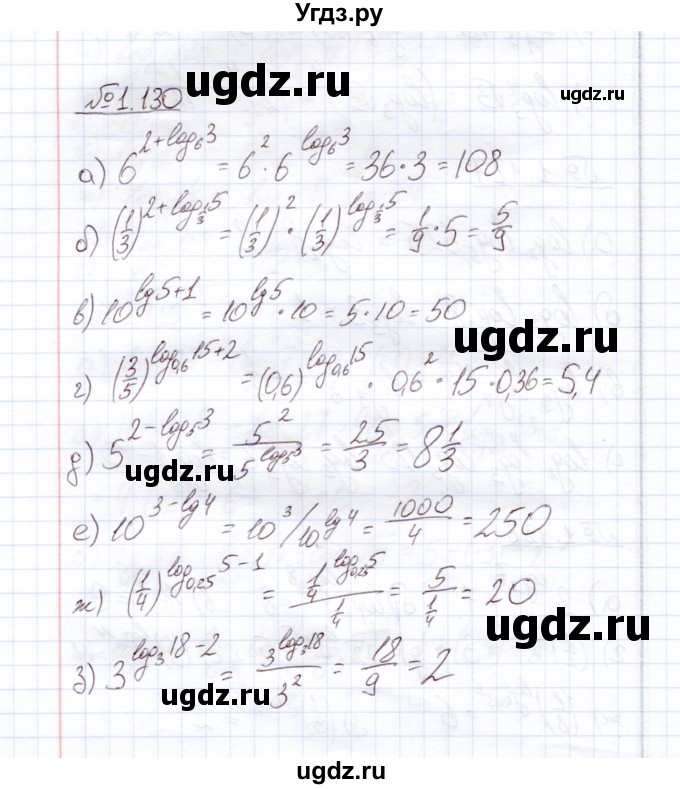 Угдз.ру
ugdz.ru
№1.130
ugdz.ru
а) 6^(2+log₆3) = 6² · 6^(log₆3) = 36 · 3 = 108
ugdz.ru
б) (1/3)^(2+log_(1/3)5) = (1/3)² · (1/3)^(log_(1/3)5) = 1/9 · 5 = 5/9
в) 10^(lg5+1) = 10^(lg5) · 10 = 5 · 10 = 50
ugdz.ru
ugdz.ru
г) (3/5)^(log_(0,6)15+2) = (0,6)^(log_(0,6)15) · 0,6² · 15 · 0,36 = 5,4
д) 5^(2-log₅3) = 5²/5^(log₅3) = 25/3 = 8 1/3
ugdz.ru
е) 10^(3-lg4) = 10³/10^(lg4) = 1000/4 = 250
ж) (1/4)^(log_(0,25)5-1) = (1/4^(log_(0,25)5))/(1/4) = 5/(1/4) = 20
ugdz.ru
з) 3^(log₃18-2) = 3^(log₃18)/3² = 18/9 = 2
ugdz.ru
ugdz.ru